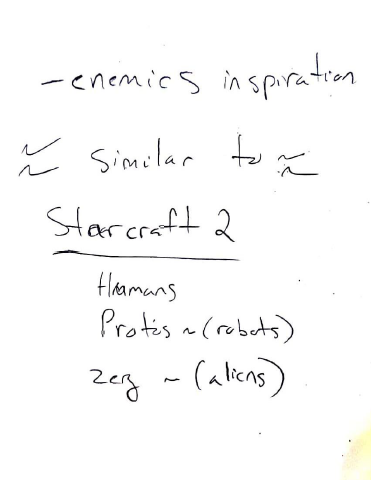 - enemies inspiration
≈ Similar to ≈
Starcraft 2
Humans
Protis ~ (robots)
zerg ~ (aliens)